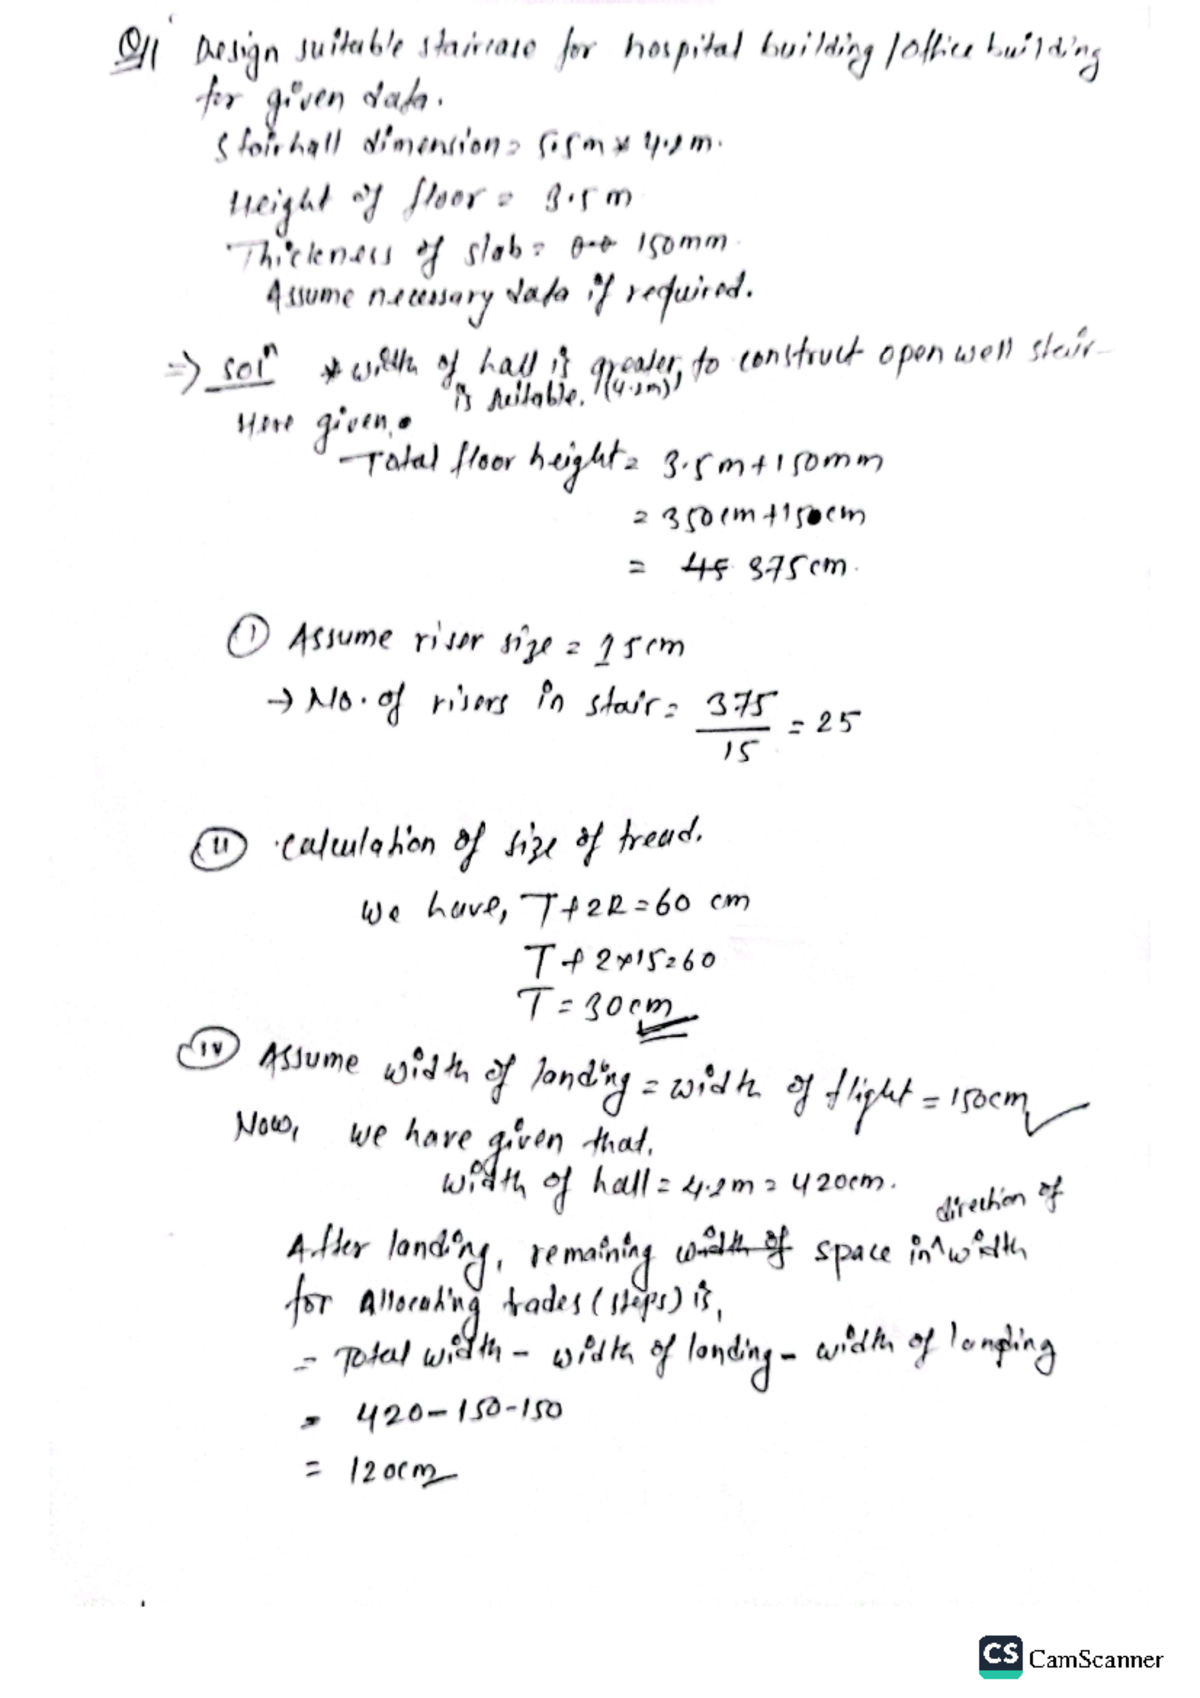 Q1 Design suitable staircase for hospital building / office building
for given data.
Stairhall dimension = 5.5m * 4.2m.
Height of floor = 3.5m
Thickness of slab = 150mm.
Assume necessary data if required.
=> soln * width of hall is greater, to construct open well stair
is suitable. (4.2m)
Here given.
Total floor height = 3.5m + 150mm
= 350cm + 150cm
= 45 375cm.
① Assume riser size = 15cm
→ No. of risers in stair = 375/15 = 25
(ii) calculation of size of tread.
We have, T + 2R = 60 cm
T + 2×15 = 60
T = 30cm
(iv) Assume width of landing = width of flight = 150cm
Now, we have given that,
width of hall = 4.2m = 420cm.
direction of
After landing, remaining width of space in^width
for Allocating trades (steps) is,
= Total width - width of landing - width of landing
= 420 - 150 - 150
= 120cm
CS CamScanner